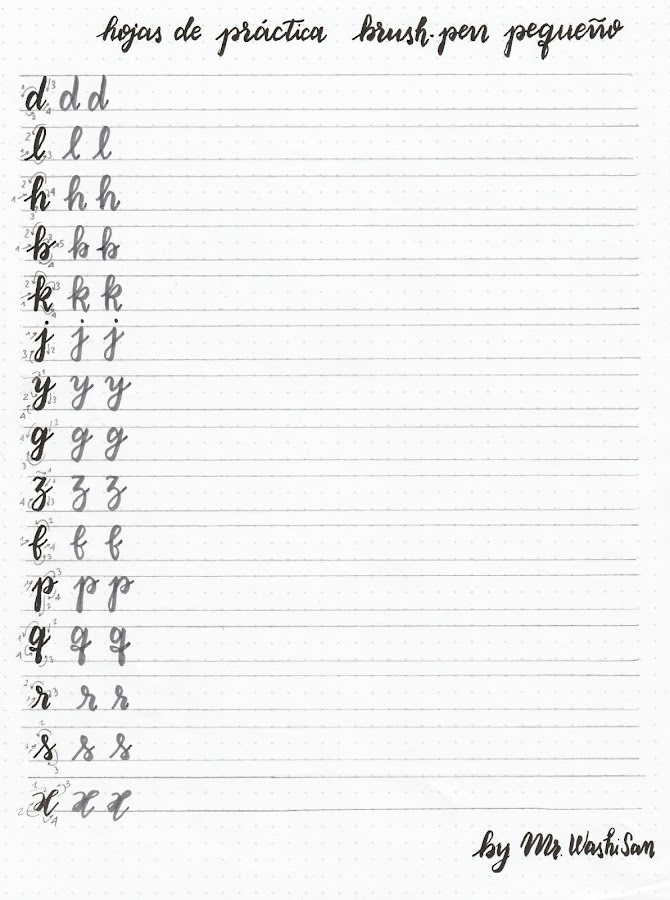 hojas de práctica brush-pen pequeño
d d d
l l l
h h h
b b b
k k k
j j j
y y y
g g g
z z z
f f f
p p p
q q q
r r r
s s s
x x x
by Mr. WashiSan